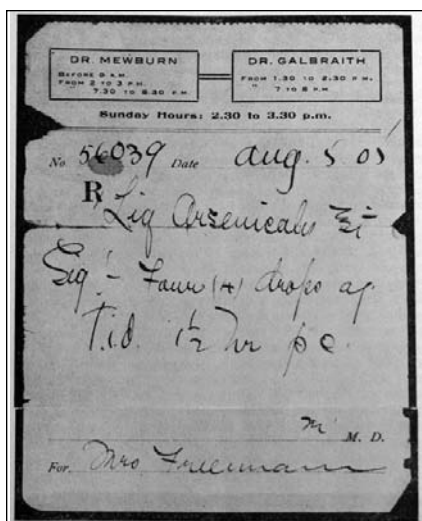 DR. MEWBURN
BEFORE 9 A.M.
FROM 2 TO 3 P.M.
7.30 TO 8.30 P.M.
DR. GALBRAITH
FROM 1.30 TO 2.30 P.M.
" 7 TO 8 P.M.
Sunday Hours: 2.30 to 3.30 p.m.
No 56039 Date Aug. 5 05
R Liq Arsenicalis
Sig:- Four (4) drops aq
T.i.d. 1½ hr p c.
M. D.
For Mrs Freemann